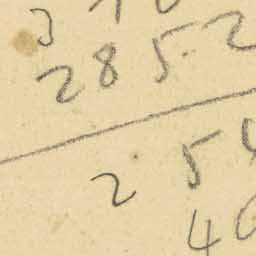 2852
2 54
40